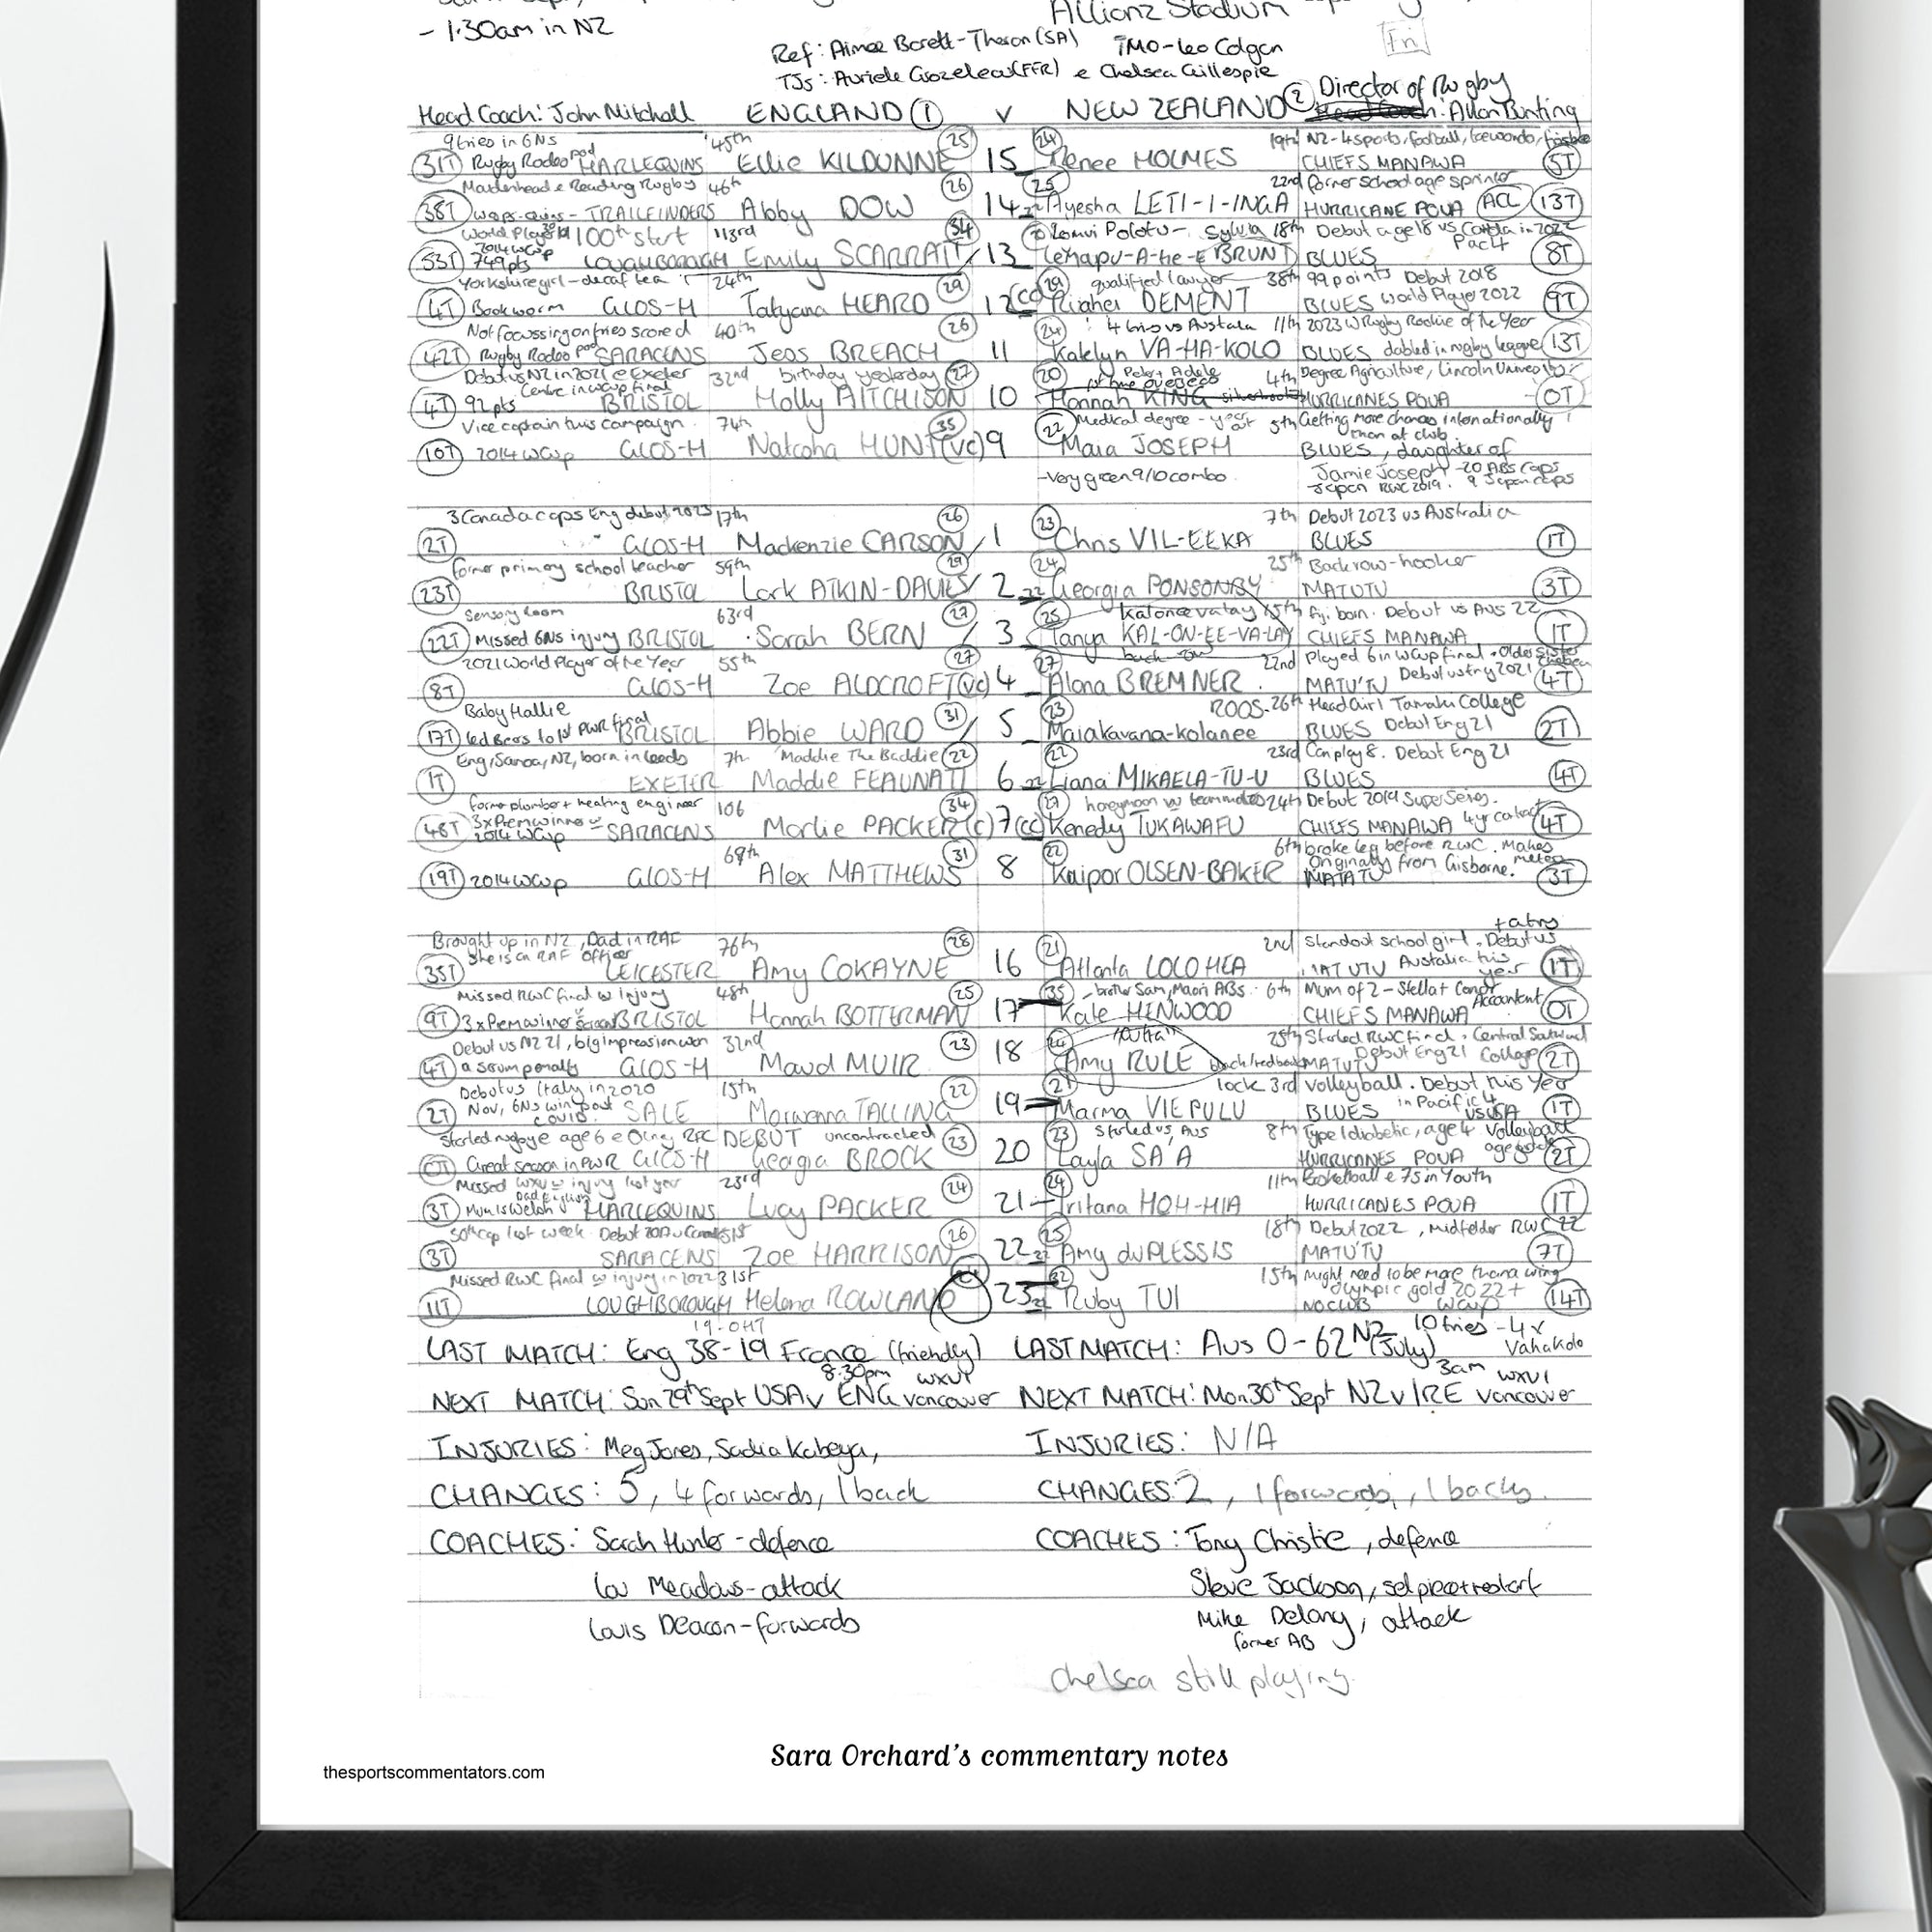 - 1:30am in NZ
Allianz Stadium
Ref: Aimee Barett-Theron (SA) TMO-Leo Colgan
Fri
TJs: Aurielie Groizeleau (FFR) e Chelsea Gillespie
Director of Rugby
Head Coach: John Mitchell ENGLAND 1 v NEW ZEALAND 2 : Allan Bunting
9 tries in 6Ns 45th 25 24 19th NZ-4 sports, football,
31T Rugby Rodeo pod HARLEQUINS Ellie KILDUNNE 15 Renee HOLMES CHIEFS MANAWA 5T
Maidenhead e Reading Rugby 46th 26 25 22nd former school age sprinter
38T wasps-quins-TRAILFINDERS Abby DOW 14 22 Ayesha LETI-I-INGA HURRICANE POUA ACC 13T
World Player 100th start 113rd 34 Sylvia 18th Debut age 18 vs in 2022
Pac4
53T 749pts 2014 WCup LOUGHBOROUGH Emily SCARRATT 13 BRUNT BLUES 8T
Yorkshire girl-decaf tea 24th 29 29 qualified lawyer 38th 99 points Debut 2018
4T Bookworm GLOS-H Tatyana HEARD 12 (cc) Ruahei DEMENT BLUES World Player 2022 9T
Not focussing on tries scored 40th 26 24 4 tries vs Austalia 11th 2023 W Rugby Rookie of the Year
42T Rugby Rodeo pod SARACENS Jess BREACH 11 Katelyn VA-HA-KOLO BLUES dabled in rugby league 13T
Debut vs NZ in 2021 e Exeter 32nd birthday yesterday 27 20 4th Degree Agriculture, Lincoln
Centre in WCup final
4T 92pts BRISTOL Holly AITCHISON 10 Hannah KING HURRICANES POUA 0T
Vice captain this campaign 74th 35 22 Medical degree - year out 5th Getting more chances internationally
than at club.
10T 2014 WCup GLOS-H Natasha HUNT (vc) 9 Maia JOSEPH BLUES, daughter of
-Very green 9/10 combo Jamie Joseph -20 ABs caps
Japan RWC 2019. 9 Japan caps
3 Canada caps Eng debut 2023 17th 26 23 7th Debut 2023 vs Australia
2T GLOS-H Mackenzie CARSON / 1 Chris VIL-EEKA BLUES 1T
former primary school teacher 59th 29 24 25th Backrow-hooker
23T BRISTOL Lark ATKIN-DAVIES / 2 22 Georgia PONSONBY MATUTU 3T
Sensory Room 63rd 27 25 15th Fiji born. Debut vs Aus 22
22T Missed 6Ns injury BRISTOL Sarah BERN / 3 Tanya KAL-ON-EE-VA-LAY CHIEFS MANAWA 1T
2021 World Player of the Year 55th 27 27 22nd Played 6 in WCup final. Older sister Chelsea
8T GLOS-H Zoe ALDCROFT (vc) 4 Alana BREMNER MATU'TU Debut 2021 4T
Baby Hallie 31 23 ROOS- 26th Head Girl Tamaki College
17T led Bears to 1st PWR final BRISTOL Abbie WARD / 5 Maiakavana-kolanee BLUES Debut Eng 21 2T
Eng, Samoa, NZ, born in Leeds 7th Maddie The Baddie 22 22 23rd Can play 8. Debut Eng 21
1T EXETER Maddie FEAUNATI 6 22 Liana MIKAELA-TU-U BLUES 4T
former plumber + heating engineer 106 34 27 honeymoon w teammates 24th Debut 2019 Super Series.
48T 3xPrem winner 2014 WCup SARACENS Marlie PACKER (c) 7 (cc) Kenedy TUKAWAFU CHIEFS MANAWA 4yr contract 4T
69th 31 22 6th broke leg before RWC. Makes metres
Originally from Gisborne.
19T 2014 WCup GLOS-H Alex MATTHEWS 8 Kaipor OLSEN-BAKER MATATU 3T
Brought up in NZ, Dad in RAF 76th 28 21 2nd Standout school girl. Debut vs
She is an RAF officer
35T LEICESTER Amy COKAYNE 16 Atlanta LOLOHEA MATUTU Australia this year 1T
Missed RWC final w injury 48th 25 35 -brother Sam, Maori ABs. 6th Mum of 2 - Stella +
9T 3xPrem winner BRISTOL Hannah BOTTERMAN 17 Kate HENWOOD CHIEFS MANAWA Accountant 0T
Debut vs NZ 21, big impression won 32nd 23 24 25th Started RWC final. Central Southland College
4T a scrum penalty GLOS-H Maud MUIR 18 Amy RULE MATUTU Debut Eng 21 2T
Debut vs Italy in 2020 15th 22 21 lock 3rd volleyball. Debut this Year
2T Nov, 6Ns win post covid. SALE Morwenna TALLING 19 Marma VIEPULU BLUES in Pacific 4 vs USA 1T
Started rugby e age 6 e Olney RFC DEBUT uncontracted 23 23 Started vs Aus 8th Type 1 diabetic, age 4. Volleyball
0T Great season in PWR GLOS-H Georgia BROCK 20 Layla SA'A HURRICANES POUA 2T
Missed WXV w injury last year 23rd 24 24 11th Basketball e 7s in Youth
3T Mum is Welsh Dad English HARLEQUINS Lucy PACKER 21 Iritana HOH-HIA HURRICANES POUA 1T
50th cap last week. Debut 51st 26 25 18th Debut 2022, Midfielder RWC 22
3T SARACENS Zoe HARRISON 22 22 Amy duPLESSIS MATU'TU 7T
Missed RWC final w injury in 2022 31st 32 15th might need to be more than a wing
Olympic gold 2022 + WCup
11T LOUGHBOROUGH Helena ROWLAND 23 22 Ruby TUI NO CLUB 14T
19-0HT
LAST MATCH: Eng 38-19 France (friendly) LAST MATCH: Aus 0-62 NZ (July) 10 tries - 4x Vahakolo
NEXT MATCH: Sun 29th Sept USA v ENG Vancouver 8:30pm WXV1 NEXT MATCH: Mon 30th Sept NZ v IRE Vancouver 3am WXV1
INJURIES: Meg Jones, Sadia Kabeya, INJURIES: N/A
CHANGES: 5, 4 forwards, 1 back CHANGES: 2, 1 forwards, 1 backs.
COACHES: Sarah Hunter - defence COACHES: Tony Christie, defence
Lou Meadows - attack Steve Jackson, set piece + restart
Louis Deacon - forwards Mike Delany, attack
former AB
Chelsea still playing.
Sara Orchard's commentary notes
thesportscommentators.com